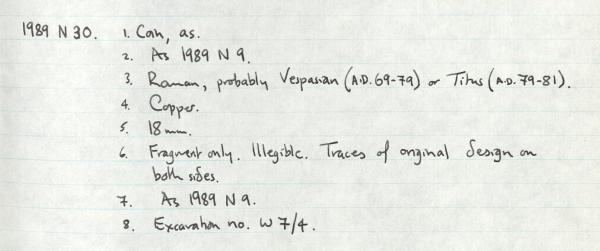 1989 N 30. 1. Coin, as.
2. As 1989 N 9.
3. Roman, probably Vespasian (A.D. 69-79) or Titus (A.D. 79-81).
4. Copper.
5. 18mm.
6. Fragment only. Illegible. Traces of original design on
both sides.
7. As 1989 N 9.
8. Excavation no. W 7/4.